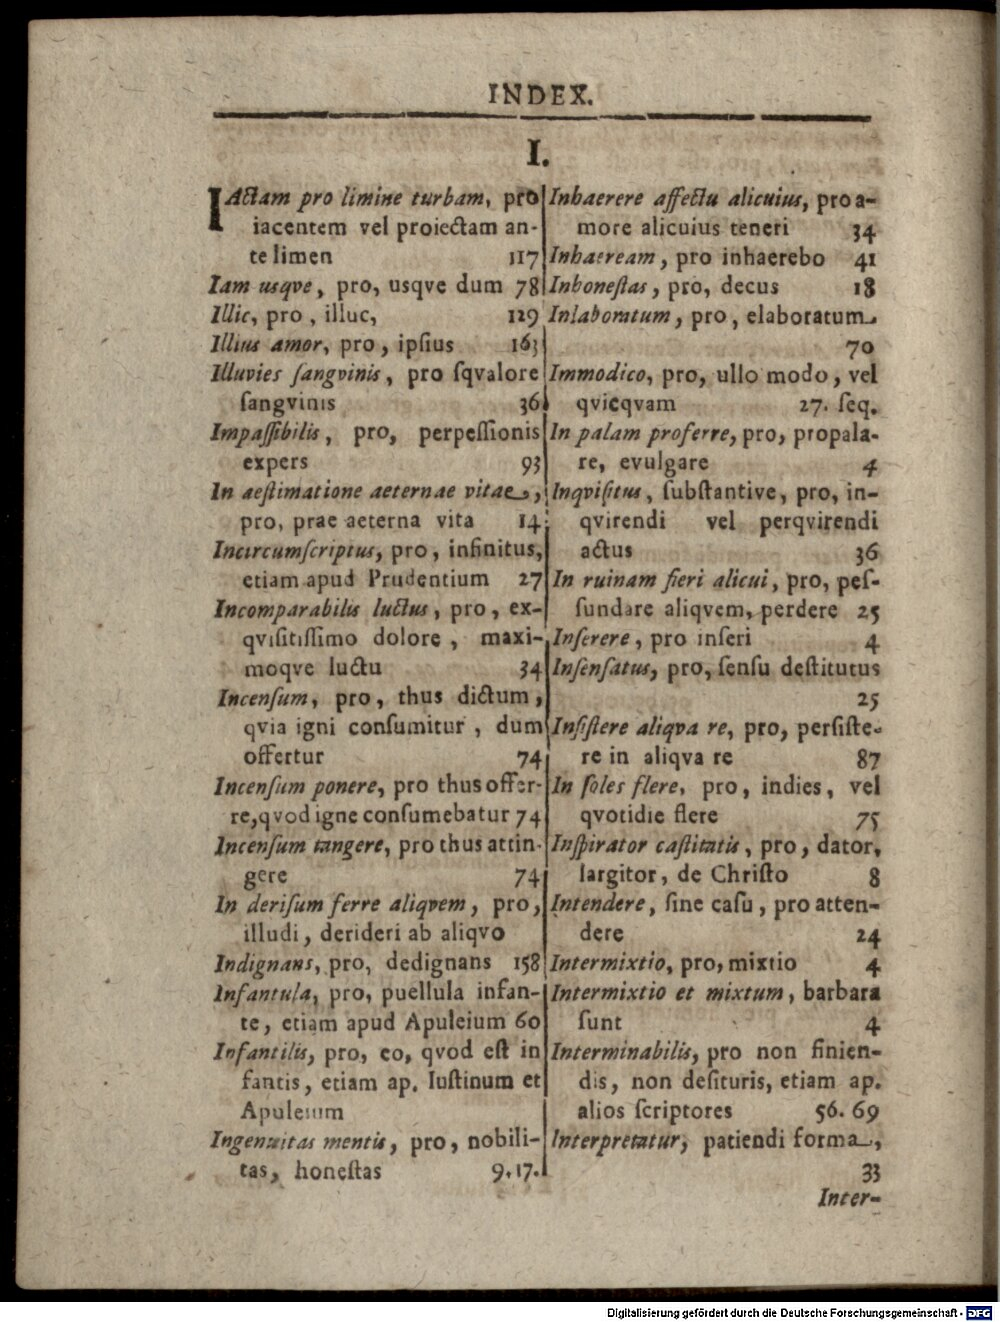 INDEX.
I.
IActam pro limine turbam, pro
iacentem vel proiectam an-
te limen 117
Iam usqve, pro, usqve dum 78
Illic, pro, illuc, 129
Illius amor, pro, ipsius 163
Illuvies sangvinis, pro sqvalore
sangvinis 36
Impassibilis, pro, perpessionis
expers 93
In aestimatione aeternae vitae,
pro, prae aeterna vita 14
Incircumscriptus, pro, infinitus,
etiam apud Prudentium 27
Incomparabilis luctus, pro, ex-
qvisitissimo dolore, maxi-
moqve luctu 34
Incensum, pro, thus dictum,
qvia igni consumitur, dum
offertur 74
Incensum ponere, pro thus offer-
re, qvod igne consumebatur 74
Incensum tangere, pro thus attin-
gere 74
In derisum ferre aliqvem, pro,
illudi, derideri ab aliqvo
Indignans, pro, dedignans 158
Infantula, pro, puellula infan-
te, etiam apud Apuleium 60
Infantilis, pro, eo, qvod est in
fantis, etiam ap. Iustinum et
Apuleium
Ingenuitas mentis, pro, nobili-
tas, honestas 9. 17.
Inhaerere affectu alicuius, pro a-
more alicuius teneri 34
Inhaeream, pro inhaerebo 41
Inhonestas, pro, decus 18
Inlaboratum, pro, elaboratum
70
Immodico, pro, ullo modo, vel
qvicqvam 27. seq.
In palam proferre, pro, propala-
re, evulgare 4
Inqvisitus, substantive, pro, in-
qvirendi vel perqvirendi
actus 36
In ruinam fieri alicui, pro, pes-
sundare aliqvem, perdere 25
Inserere, pro inseri 4
Insensatus, pro, sensu destitutus
25
Insistere aliqva re, pro, persiste-
re in aliqva re 87
In soles flere, pro, indies, vel
qvotidie flere 75
Inspirator castitatis, pro, dator,
largitor, de Christo 8
Intendere, sine casu, pro atten-
dere 24
Intermixtio, pro, mixtio 4
Intermixtio et mixtum, barbara
sunt 4
Interminabilis, pro non finien-
dis, non desituris, etiam ap.
alios scriptores 56. 69
Interpretatur, patiendi forma,
33
Inter-
Digitalisierung gefördert durch die Deutsche Forschungsgemeinschaft - DFG